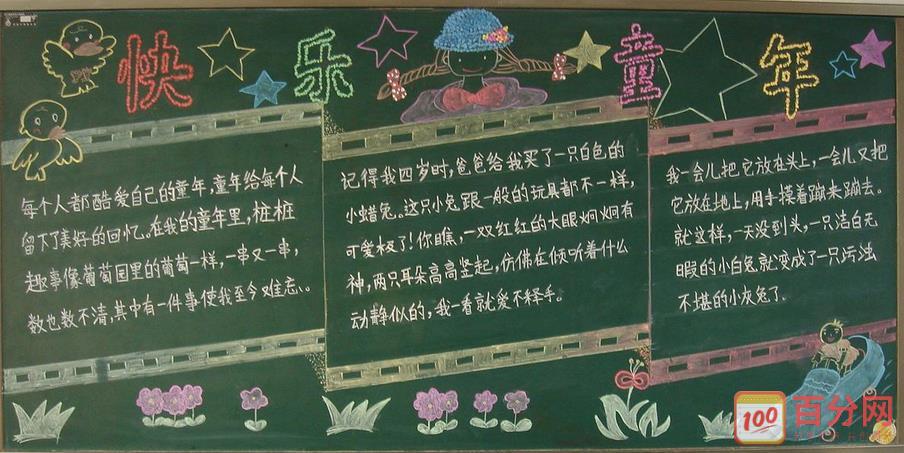 快乐童年
每个人都酷爱自己的童年,童年给每个人
留下了美好的回忆。在我的童年里,桩桩
趣事像葡萄园里的葡萄一样,一串又一串,
数也数不清,其中有一件事使我至今难忘。
记得我四岁时,爸爸给我买了一只白色的
小蜡兔。这只小兔跟一般的玩具都不一样,
可爱极了!你瞧,一双红红的大眼炯炯有
神,两只耳朵高高竖起,仿佛在倾听着什么
动静似的,我一看就爱不释手。
我一会儿把它放在头上,一会儿又把
它放在地上,用手摸着蹦来蹦去。
就这样,一天没到头,一只洁白无
暇的小白兔就变成了一只污浊
不堪的小灰兔了。
100
百分网